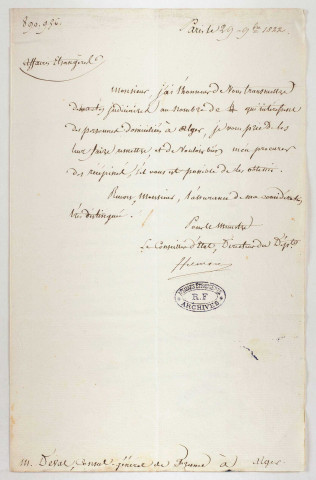 Paris le 29 9bre 1822.
Affaires Étrangères
Monsieur, j'ai l'honneur de Vous transmettre
des actes judiciaires au nombre de 4 qui intéressent
des personnes domiciliées à Alger, je vous prie de les
leur faire remettre et de vouloir bien m'en procurer
des récépissés s'il vous est possible de les obtenir.
Recevez, Monsieur, l'assurance de ma considération
très distinguée.
Pour le Ministre
Le Conseiller d'État, Directeur du
R.F
ARCHIVES
M. Deval, Consul général de France à Alger